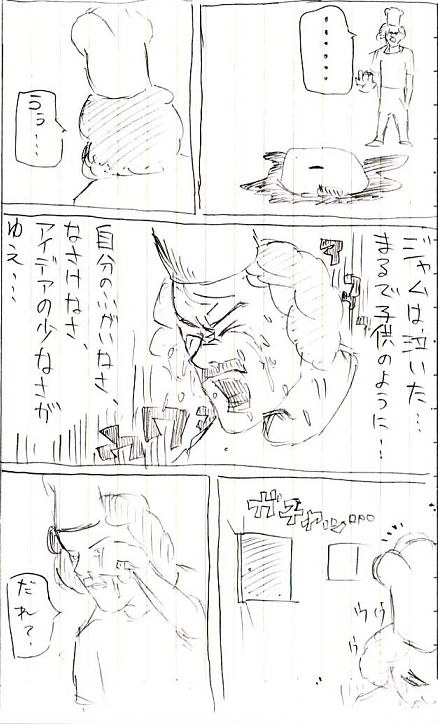 ・・・・・・
うう…
ジャムは泣いた…
まるで子供のように！
自分のふがいなさ、
なさけなさ、
アイデアの少なさが
ゆえ…
ガチャ
だれ？